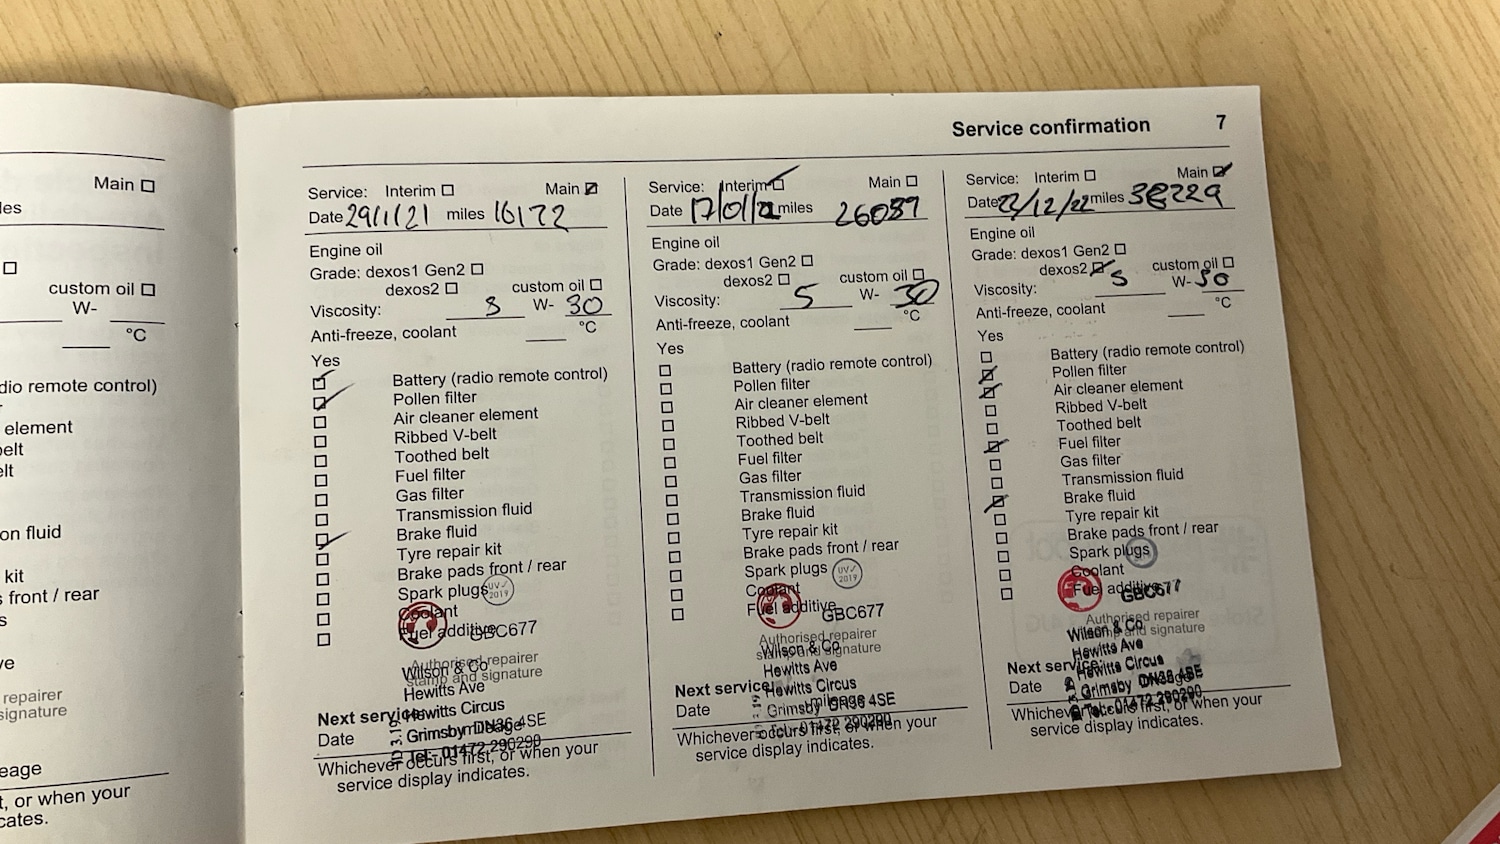 Main ☐
les
☐
custom oil ☐
W-
°C
dio remote control)
element
elt
elt
on fluid
kit
s front / rear
s
ve
repairer
signature
eage
t, or when your
cates.
Service confirmation 7
Service: Interim ☐ Main ☑
Date 29/1/21 miles 16172
Engine oil
Grade: dexos1 Gen2 ☐
dexos2 ☐ custom oil ☐
Viscosity: 5 W- 30
Anti-freeze, coolant °C
Yes
☑ Battery (radio remote control)
☑ Pollen filter
☐ Air cleaner element
☐ Ribbed V-belt
☐ Toothed belt
☐ Fuel filter
☐ Gas filter
☐ Transmission fluid
☑ Brake fluid
☐ Tyre repair kit
☐ Brake pads front / rear
☐ Spark plugs UV✓ 2019
☐ Coolant
☐ Fuel additive GBC677
Authorised repairer
stamp and signature
Wilson & Co
Hewitts Ave
Hewitts Circus
Grimsby DN36 4SE
Tel:- 01472 290290
Next service:
Date mileage
Whichever occurs first, or when your
service display indicates.
Service: Interim ☑ Main ☐
Date 17/01/22 miles
Engine oil
Grade: dexos1 Gen2 ☐
dexos2 ☐ custom oil ☐
Viscosity: 5 W- 30
Anti-freeze, coolant °C
Yes
☐ Battery (radio remote control)
☐ Pollen filter
☐ Air cleaner element
☐ Ribbed V-belt
☐ Toothed belt
☐ Fuel filter
☐ Gas filter
☐ Transmission fluid
☐ Brake fluid
☐ Tyre repair kit
☐ Brake pads front / rear
☐ Spark plugs UV✓ 2019
☐ Coolant
☐ Fuel additive GBC677
Authorised repairer
stamp and signature
Wilson & Co
Hewitts Ave
Hewitts Circus
Grimsby DN36 4SE
Tel:- 01472 290290
Next service:
Date mileage
Whichever occurs first, or when your
service display indicates.
Service: Interim ☐ Main ☑
Date miles
Engine oil
Grade: dexos1 Gen2 ☐
dexos2 ☑ custom oil ☐
Viscosity: 5 W- 30
Anti-freeze, coolant °C
Yes
☐ Battery (radio remote control)
☑ Pollen filter
☑ Air cleaner element
☐ Ribbed V-belt
☐ Toothed belt
☑ Fuel filter
☐ Gas filter
☐ Transmission fluid
☑ Brake fluid
☐ Tyre repair kit
☐ Brake pads front / rear
☐ Spark plugs
☐ Coolant
☐ Fuel additive GBC677
Authorised repairer
stamp and signature
Wilson & Co
Hewitts Ave
Hewitts Circus
Grimsby DN36 4SE
Tel:- 01472 290290
Next service:
Date mileage
Whichever occurs first, or when your
service display indicates.